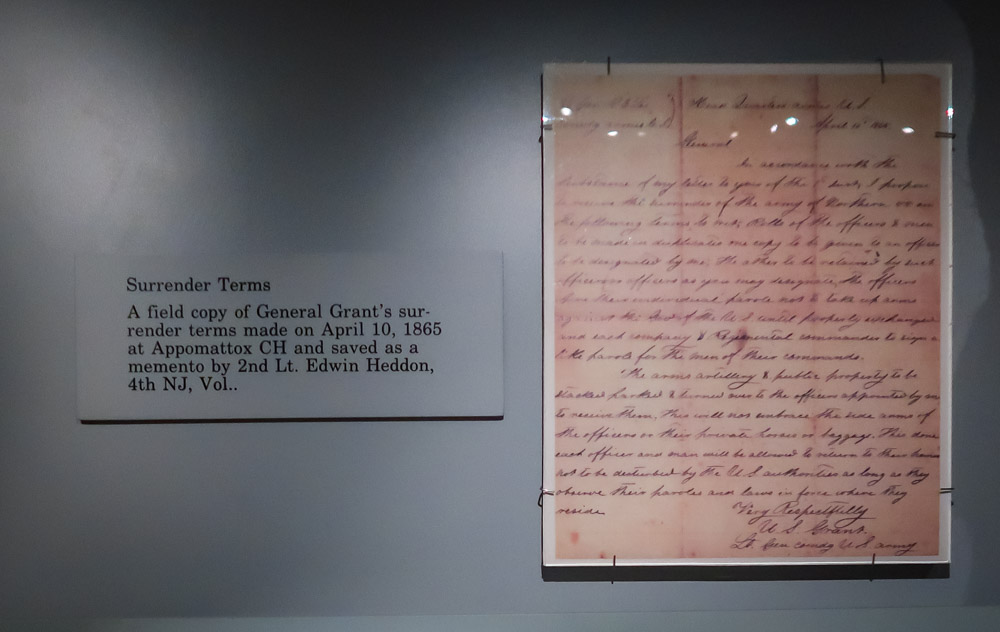 Surrender Terms
A field copy of General Grant's sur-
render terms made on April 10, 1865
at Appomattox CH and saved as a
memento by 2nd Lt. Edwin Heddon,
4th NJ, Vol..
Head Quarters armies U.S.
April
General
In accordance with the
substance of my letter to you of the inst, I propose
to receive the surrender of the army of Northern on
the following terms to wit; Rolls of the officers & men
to be made in duplicates one copy to be given to an officer
to be designated by me, the other to be retained by such
officer or officers as you may designate, the officers
give their individual parole not to take up arms
against the of the U S until properly exchanged
and each company & Regimental commander to sign a
parole for the men of their commands.
The arms artillery & public property to be
stacked parked & turned over to the officers appointed by me
to receive them, This will not embrace the side arms of
the officers or their private horses or baggage. This done
each officer and man will be allowed to return to their homes
not to be disturbed by the U S authorities as long as they
observe their paroles and laws in force where they
reside
Very Respectfully
U S Grant
Lt. Gen comdg U S army